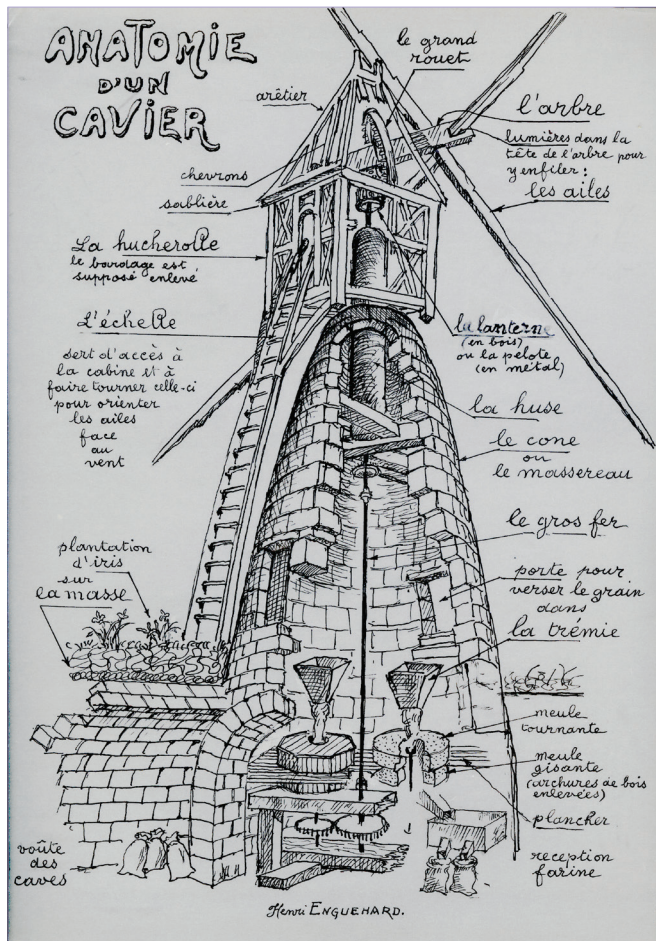 ANATOMIE
D'UN
CAVIER
le grand
rouet
arêtier
l'arbre
lumières dans la
tête de l'arbre pour
y enfiler :
les ailes
chevrons
sablière
La hucherolle
le bardage est
supposé enlevé
L'échelle
sert d'accès à
la cabine et à
faire tourner celle-ci
pour orienter
les ailes
face
au
vent
la lanterne
(en bois)
ou la pelote
(en métal)
la huse
le cone
ou
le massereau
le gros fer
plantation
d'iris
sur
la masse
porte pour
verser le grain
dans
la trémie
meule
tournante
meule
gisante
(archures de bois
enlevées)
plancher
reception
farine
voûte
des
caves
Henri ENGUEHARD.